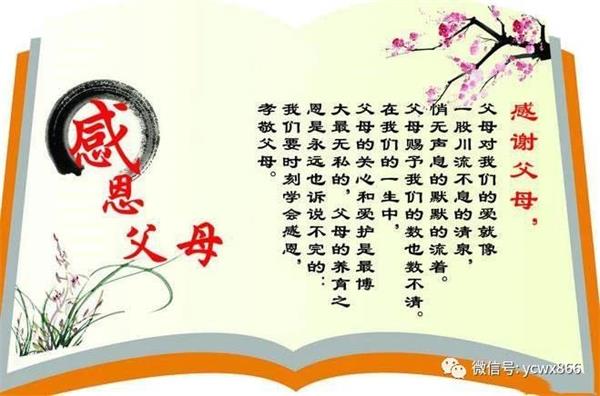 感恩父母
感谢父母，
父母对我们的爱就像
一股川流不息的清泉，
悄无声息的默默的流着。
父母赐予我们的数也数不清。
在我们的一生中，
父母的关心和爱护是最博
大最无私的，父母的养育之
恩是永远也诉说不完的：
我们要时刻学会感恩，
孝敬父母。
微信号: ycwx866